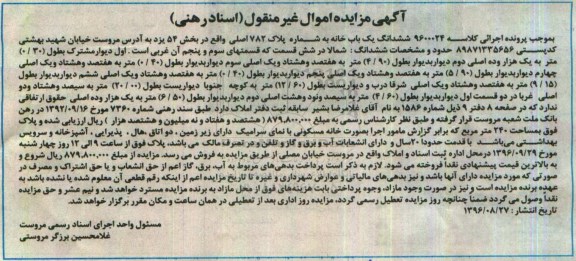 آگهی مزایده اموال غیر منقول (اسناد رهنی)
بموجب پرونده اجرائی کلاسه ۹۶۰۰۰۲۴ ششدانگ یک باب خانه به شماره پلاک ۷۸۲ اصلی واقع در بخش ۵۴ یزد به آدرس مروست خیابان شهید بهشتی
کدپستی ۸۹۸۷۱۳۳۵۶۵۶ حدود و مشخصات ششدانگ: شمالا در شش قسمت که قسمتهای سوم و پنجم آن غربی است. اول دیوار مشترک بطول (۰/۳۰)
متر به یک هزار وده اصلی دوم دیواریدیوار بطول (۹/۴) متر به هفتصد وهشتاد ویک اصلی سوم دیواریدیوار بطول (۰/۴۰) متر به هفتصد وهشتاد ویک اصلی
چهارم دیواریدیوار بطول (۵/۹۰) متر به هفتصد وهشتاد ویک اصلی پنجم دیواریدیوار بطول (۰/۴۰) متر به هفتصد وهشتاد ویک اصلی ششم دیواریدیوار بطول
(۹/۱۵) متر به هفتصد وهشتاد ویک اصلی شرقا درب و دیواریست بطول (۱۲/۶۰) متر به کوچه جنوبا دیواریست بطول (۲۰/۰۰) متر به سیصد وهشتاد ودو
اصلی غربا در دو قسمت اول دیواریدیوار بطول (۴/۶۰) متر به سیصد ونود وهشت اصلی دوم دیواریدیوار بطول (۶/۵۰) متر به یک هزار وده اصلی حقوق ارتفاقی
ندارد که در صفحه ۸ دفتر ۹ ذیل شماره ۱۵۸۶ به نام آقای غلامرضا بشیر سابقه ثبت دفتر املاک دارد. طبق سند رهنی شماره ۷۳۶۰ مورخ ۱۳۹۲/۰۹/۱۶ در رهن
بانک ملت شعبه مروست قرار گرفته و طبق نظر کارشناس رسمی به مبلغ ۸۷۹.۸۰۰.۰۰۰ (هشتصد و هفتاد و نه میلیون و هشتصد هزار) ریال ارزیابی شده و پلاک
فوق بمساحت ۲۴۰ متر مربع که برابر گزارش مامور اجرا بصورت خانه مسکونی با نمای سرامیک دارای زیر زمین، دو اتاق، هال، پذیرایی، آشپزخانه و سرویس
بهداشتی می باشد. با قدمت حدودا ۲۰سال و دارای انشعابات آب و برق و گاز و تلفن و در تصرف مالک می باشد. پلاک فوق از ساعت ۹ الی ۱۲ روز چهار شنبه
مورخ ۱۳۹۶/۰۹/۲۹ در محل اداره ثبت اسناد و املاک واقع در مروست خیابان مصلی از طریق مزایده به فروش می رسد. مزایده از مبلغ ۸۷۹.۸۰۰.۰۰۰ ریال شروع و
به بالاترین قیمت پیشنهادی نقدا فروخته می شود. لازم به ذکر است پرداخت بدهی های مربوط به آب، برق، گاز اعم از حق انشعاب و یا حق اشتراک و مصرف در
صورتی که مورد مزایده دارای آنها باشد و نیز بدهی های مالیاتی و عوارض شهرداری و غیره تا تاریخ مزایده اعم از اینکه رقم قطعی آن معلوم شده یا نشده باشد به
عهده برنده مزایده است و نیز در صورت وجود مازاد، وجوه پرداختی بابت هزینه های فوق از محل مازاد به برنده مزایده مسترد خواهد شد و نیم عشر و حق مزایده
نقدا وصول می گردد ضمنا چنانچه روز مزایده تعطیل رسمی گردد، مزایده روز اداری بعد از تعطیلی در همان ساعت و مکان مقرر برگزار خواهد شد.
تاریخ انتشار: ۱۳۹۶/۰۸/۲۷
مسئول واحد اجرای اسناد رسمی مروست
غلامحسین برزگر مروستی